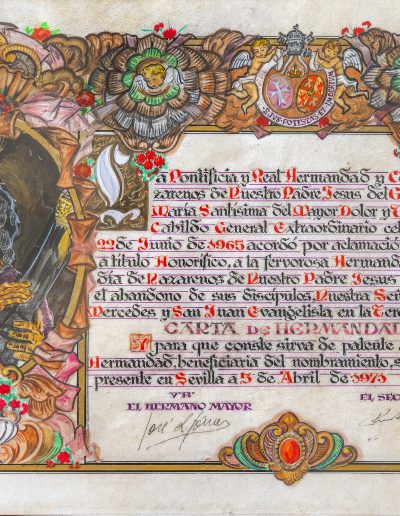 La Pontificia y Real Hermandad y C
zarenos de Nuestro Padre Jesus del G
Maria Santisima del Mayor Dolor y T
Cabildo General Extraordinario cel
22 de Junio de 1965 acordó por aclamación
a título Honorífico, a la fervorosa Hermand
día de Nazarenos de Nuestro Padre Jesus
el abandono de sus discipulos, Nuestra Señ
Mercedes y San Juan Evangelista en la Terc
CARTA de HERMANDAD
Y para que conste sirva de patente a
Hermandad, beneficiaria del nombramiento, s
presente en Sevilla a 5 de Abril de 1973
VºBº
EL HERMANO MAYOR
EL SEC